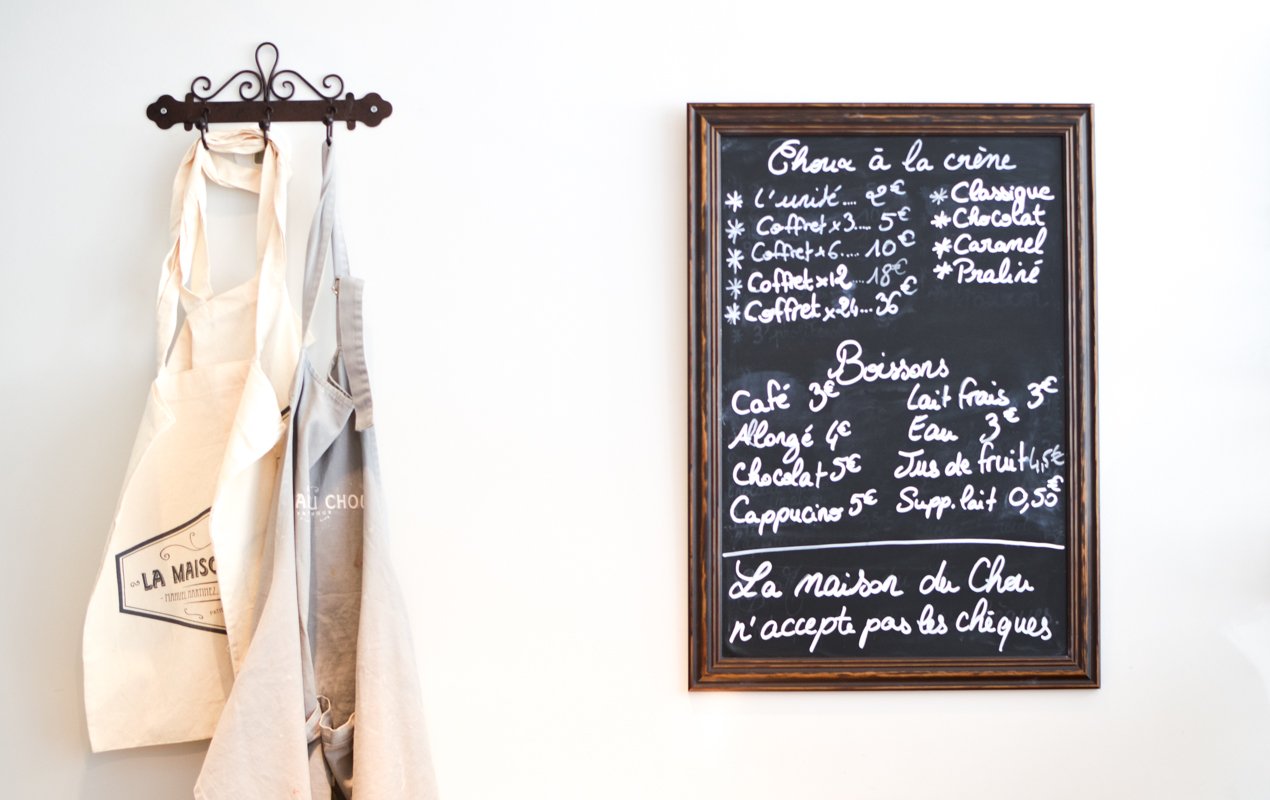 Choux à la crème
* L'unité.... 2€
* Coffret x 3.... 5€
* Coffret x 6.... 10€
* Coffret x 12...18€
* Coffret x 24...36€
* Classique
* Chocolat
* Caramel
* Praliné
Boissons
Café 3€
Allongé 4€
Chocolat 5€
Cappucino 5€
Lait frais 3€
Eau 3€
Jus de fruit 4,5€
Supp. lait 0,50€
La maison du Chou
n'accepte pas les chèques
LA MAISO
MANUEL MARTINEZ
AU CHOU